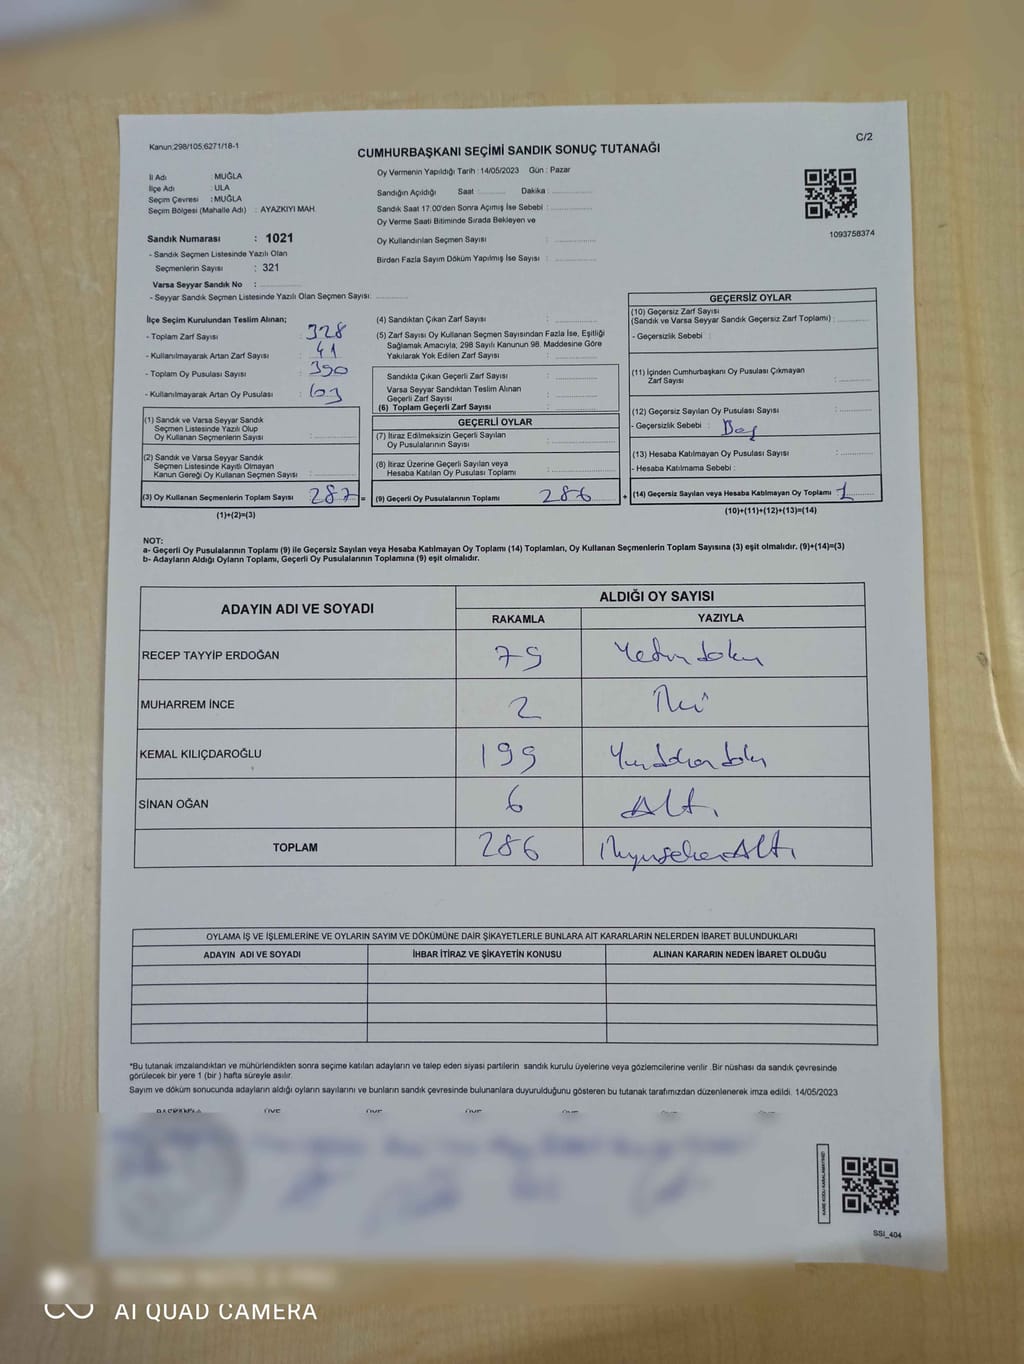 Kanun;298/105;6271/18-1
C/2
CUMHURBAŞKANI SEÇİMİ SANDIK SONUÇ TUTANAĞI
İl Adı : MUĞLA
İlçe Adı : ULA
Seçim Çevresi : MUĞLA
Seçim Bölgesi (Mahalle Adı) : AYAZKIYI MAH.
Sandık Numarası : 1021
- Sandık Seçmen Listesinde Yazılı Olan
Seçmenlerin Sayısı : 321
Varsa Seyyar Sandık No :
- Seyyar Sandık Seçmen Listesinde Yazılı Olan Seçmen Sayısı:
Oy Vermenin Yapıldığı Tarih : 14/05/2023 Gün : Pazar
Sandığın Açıldığı Saat : Dakika :
Sandık Saat 17:00'den Sonra Açımış İse Sebebi :
Oy Verme Saati Bitiminde Sırada Bekleyen ve
Oy Kullandırılan Seçmen Sayısı :
Birden Fazla Sayım Döküm Yapılmış İse Sayısı :
1093758374
İlçe Seçim Kurulundan Teslim Alınan;
- Toplam Zarf Sayısı : 328
- Kullanılmayarak Artan Zarf Sayısı : 41
- Toplam Oy Pusulası Sayısı : 390
- Kullanılmayarak Artan Oy Pusulası : 103
(1) Sandık ve Varsa Seyyar Sandık
Seçmen Listesinde Yazılı Olup
Oy Kullanan Seçmenlerin Sayısı :
(2) Sandık ve Varsa Seyyar Sandık
Seçmen Listesinde Kayıtlı Olmayan
Kanun Gereği Oy Kullanan Seçmen Sayısı :
(3) Oy Kullanan Seçmenlerin Toplam Sayısı : 287 =
(1)+(2)=(3)
(4) Sandıktan Çıkan Zarf Sayısı :
(5) Zarf Sayısı Oy Kullanan Seçmen Sayısından Fazla İse, Eşitliği
Sağlamak Amacıyla; 298 Sayılı Kanunun 98. Maddesine Göre
Yakılarak Yok Edilen Zarf Sayısı :
Sandıkla Çıkan Geçerli Zarf Sayısı :
Varsa Seyyar Sandıktan Teslim Alınan
Geçerli Zarf Sayısı :
(6) Toplam Geçerli Zarf Sayısı :
GEÇERLİ OYLAR
(7) İtiraz Edilmeksizin Geçerli Sayılan
Oy Pusulalarının Sayısı :
(8) İtiraz Üzerine Geçerli Sayılan veya
Hesaba Katılan Oy Pusulası Toplamı :
(9) Geçerli Oy Pusulalarının Toplamı : 286 +
GEÇERSİZ OYLAR
(10) Geçersiz Zarf Sayısı
(Sandık ve Varsa Seyyar Sandık Geçersiz Zarf Toplamı) :
- Geçersizlik Sebebi :
(11) İçinden Cumhurbaşkanı Oy Pusulası Çıkmayan
Zarf Sayısı :
(12) Geçersiz Sayılan Oy Pusulası Sayısı :
- Geçersizlik Sebebi : Boş
(13) Hesaba Katılmayan Oy Pusulası Sayısı :
- Hesaba Katılmama Sebebi :
(14) Geçersiz Sayılan veya Hesaba Katılmayan Oy Toplamı : 1
(10)+(11)+(12)+(13)=(14)
NOT:
a- Geçerli Oy Pusulalarının Toplamı (9) ile Geçersiz Sayılan veya Hesaba Katılmayan Oy Toplamı (14) Toplamları, Oy Kullanan Seçmenlerin Toplam Sayısına (3) eşit olmalıdır. (9)+(14)=(3)
b- Adayların Aldığı Oyların Toplamı, Geçerli Oy Pusulalarının Toplamına (9) eşit olmalıdır.
ADAYIN ADI VE SOYADI
ALDIĞI OY SAYISI
RAKAMLA YAZIYLA
RECEP TAYYİP ERDOĞAN 79 Yetmişdokuz
MUHARREM İNCE 2 İki
KEMAL KILIÇDAROĞLU 199 Yüzdoksandokuz
SİNAN OĞAN 6 Altı
TOPLAM 286 İkiyüzseksenAltı
OYLAMA İŞ VE İŞLEMLERİNE VE OYLARIN SAYIM VE DÖKÜMÜNE DAİR ŞİKAYETLERLE BUNLARA AİT KARARLARIN NELERDEN İBARET BULUNDUKLARI
ADAYIN ADI VE SOYADI İHBAR İTİRAZ VE ŞİKAYETİN KONUSU ALINAN KARARIN NEDEN İBARET OLDUĞU
*Bu tutanak imzalandıktan ve mühürlendikten sonra seçime katılan adayların ve talep eden siyasi partilerin sandık kurulu üyelerine veya gözlemcilerine verilir. Bir nüshası da sandık çevresinde
görülecek bir yere 1 (bir ) hafta süreyle asılır.
Sayım ve döküm sonucunda adayların aldığı oyların sayılarını ve bunların sandık çevresinde bulunanlara duyurulduğunu gösteren bu tutanak tarafımızdan düzenlenerek imza edildi. 14/05/2023
KARE KODU KARALAMAYINIZ!
SSI_404
AI QUAD CAMERA